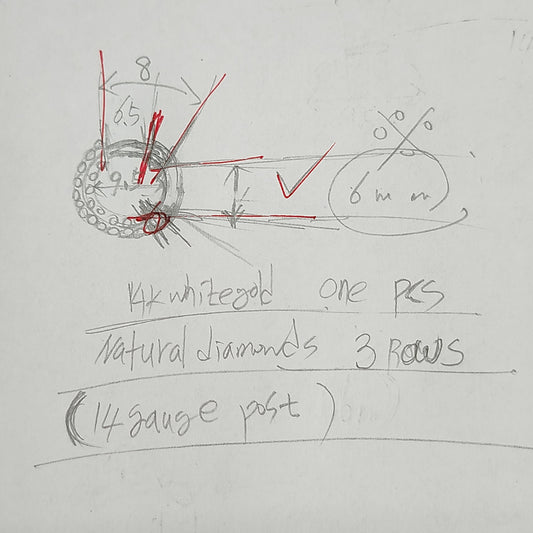 8
6.5
9.5
6 mm
14k whitegold one pcs
Natural diamonds 3 ROWS
(14 gauge post)